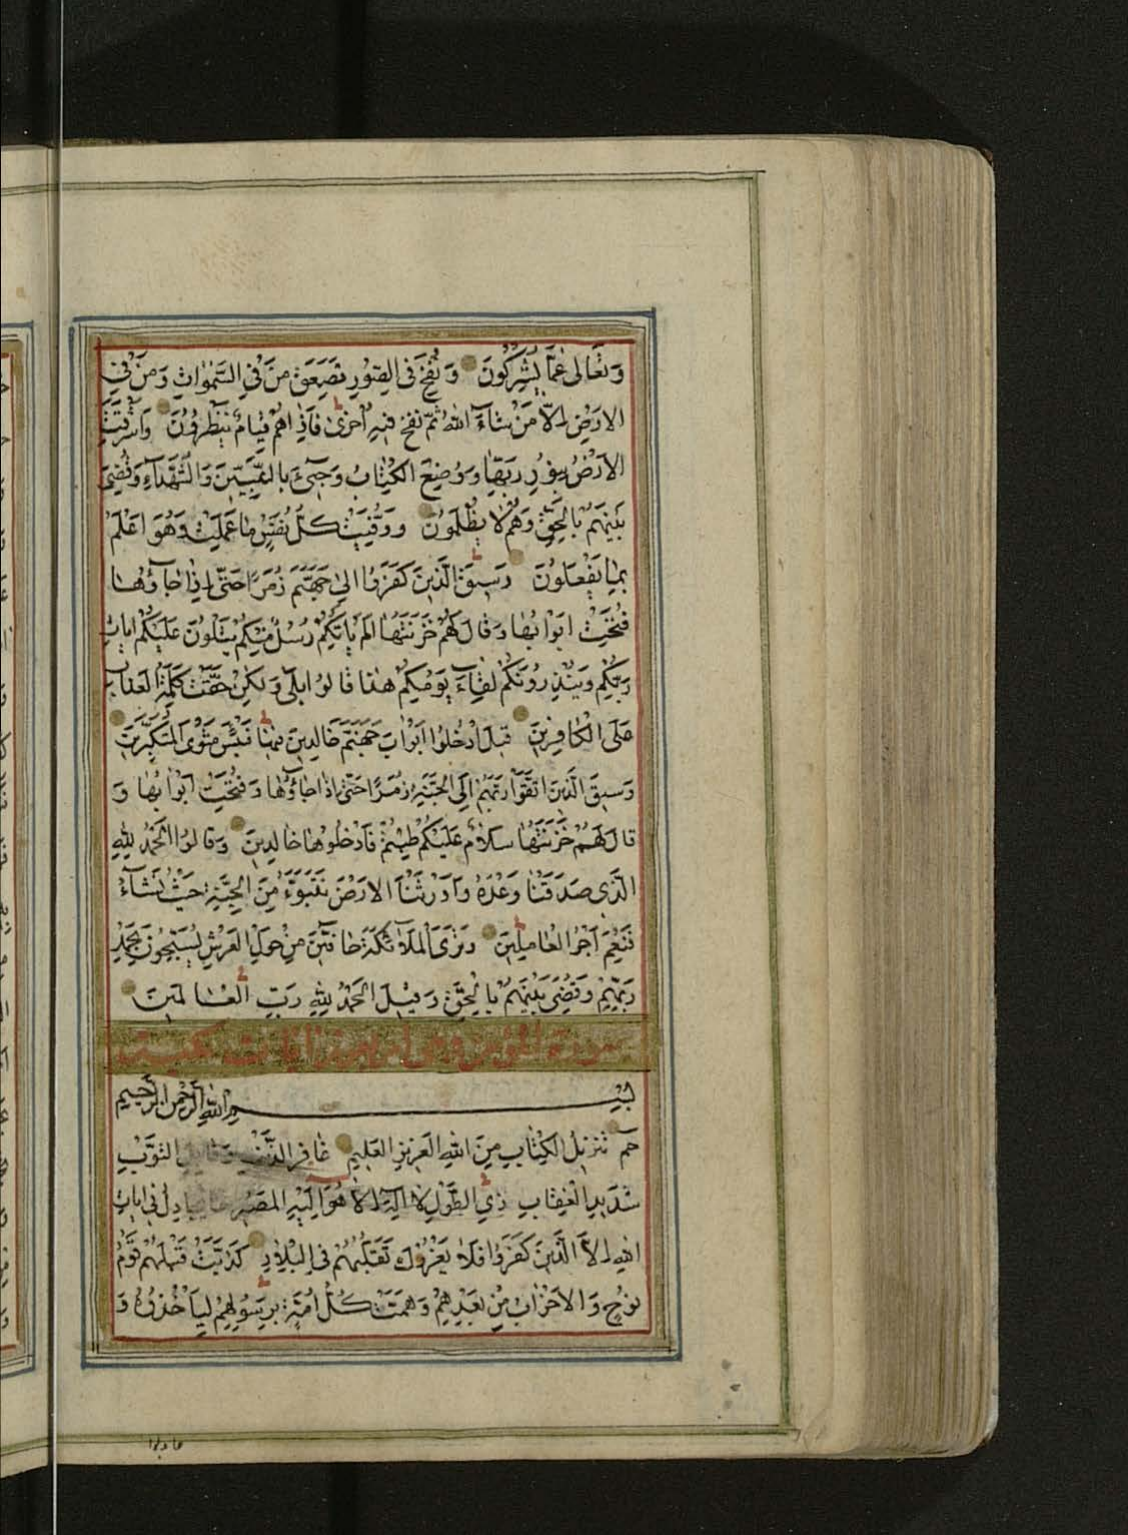 وَتَعَالَى عَمَّا يُشْرِكُونَ وَنُفِخَ فِى الصُّورِ فَصَعِقَ مَنْ فِي السَّمٰوَاتِ وَمَنْ فِي
الْاَرْضِ اِلَّا مَنْ شَاءَ اللهُ ثُمَّ نُفِخَ فِيهِ اُخْرٰى فَاِذَا هُمْ قِيَامٌ يَنْظُرُونَ وَاَشْرَقَتِ
الْاَرْضُ بِنُورِ رَبِّهَا وَوُضِعَ الْكِتَابُ وَجِىءَ بِالنَّبِيِّينَ وَالشُّهَدَاءِ وَقُضِىَ
بَيْنَهُمْ بِالْحَقِّ وَهُمْ لَا يُظْلَمُونَ وَوُفِّيَتْ كُلُّ نَفْسٍ مَا عَمِلَتْ وَهُوَ اَعْلَمُ
بِمَا يَفْعَلُونَ وَسِيقَ الَّذِينَ كَفَرُوا اِلٰى جَهَنَّمَ زُمَرًا حَتّٰى اِذَا جَاؤُهَا
فُتِحَتْ اَبْوَابُهَا وَقَالَ لَهُمْ خَزَنَتُهَا اَلَمْ يَأْتِكُمْ رُسُلٌ مِنْكُمْ يَتْلُونَ عَلَيْكُمْ اٰيَاتِ
رَبِّكُمْ وَيُنْذِرُونَكُمْ لِقَاءَ يَوْمِكُمْ هٰذَا قَالُوا بَلٰى وَلٰكِنْ حَقَّتْ كَلِمَةُ الْعَذَابِ
عَلَى الْكَافِرِينَ قِيلَ ادْخُلُوا اَبْوَابَ جَهَنَّمَ خَالِدِينَ فِيهَا فَبِئْسَ مَثْوَى الْمُتَكَبِّرِينَ
وَسِيقَ الَّذِينَ اتَّقَوْا رَبَّهُمْ اِلَى الْجَنَّةِ زُمَرًا حَتّٰى اِذَا جَاؤُهَا وَفُتِحَتْ اَبْوَابُهَا وَ
قَالَ لَهُمْ خَزَنَتُهَا سَلَامٌ عَلَيْكُمْ طِبْتُمْ فَادْخُلُوهَا خَالِدِينَ وَقَالُوا الْحَمْدُ لِلّٰهِ
الَّذِى صَدَقَنَا وَعْدَهُ وَاَوْرَثَنَا الْاَرْضَ نَتَبَوَّءُ مِنَ الْجَنَّةِ حَيْثُ نَشَاءُ
فَنِعْمَ اَجْرُ الْعَامِلِينَ وَتَرَى الْمَلٰئِكَةَ حَافِّينَ مِنْ حَوْلِ الْعَرْشِ يُسَبِّحُونَ بِحَمْدِ
رَبِّهِمْ وَقُضِىَ بَيْنَهُمْ بِالْحَقِّ وَقِيلَ الْحَمْدُ لِلّٰهِ رَبِّ الْعَالَمِينَ
سورة المؤمن وهى
بِسْمِ اللهِ الرَّحْمٰنِ الرَّحِيمِ
حم تَنْزِيلُ الْكِتَابِ مِنَ اللهِ الْعَزِيزِ الْعَلِيمِ غَافِرِ الذَّنْبِ وَقَابِلِ التَّوْبِ
شَدِيدِ الْعِقَابِ ذِي الطَّوْلِ لَا اِلٰهَ اِلَّا هُوَ اِلَيْهِ الْمَصِيرُ مَا يُجَادِلُ فِى اٰيَاتِ
اللهِ اِلَّا الَّذِينَ كَفَرُوا فَلَا يَغْرُرْكَ تَقَلُّبُهُمْ فِى الْبِلَادِ كَذَّبَتْ قَبْلَهُمْ قَوْمُ
نُوحٍ وَالْاَحْزَابُ مِنْ بَعْدِهِمْ وَهَمَّتْ كُلُّ اُمَّةٍ بِرَسُولِهِمْ لِيَأْخُذُوهُ وَ